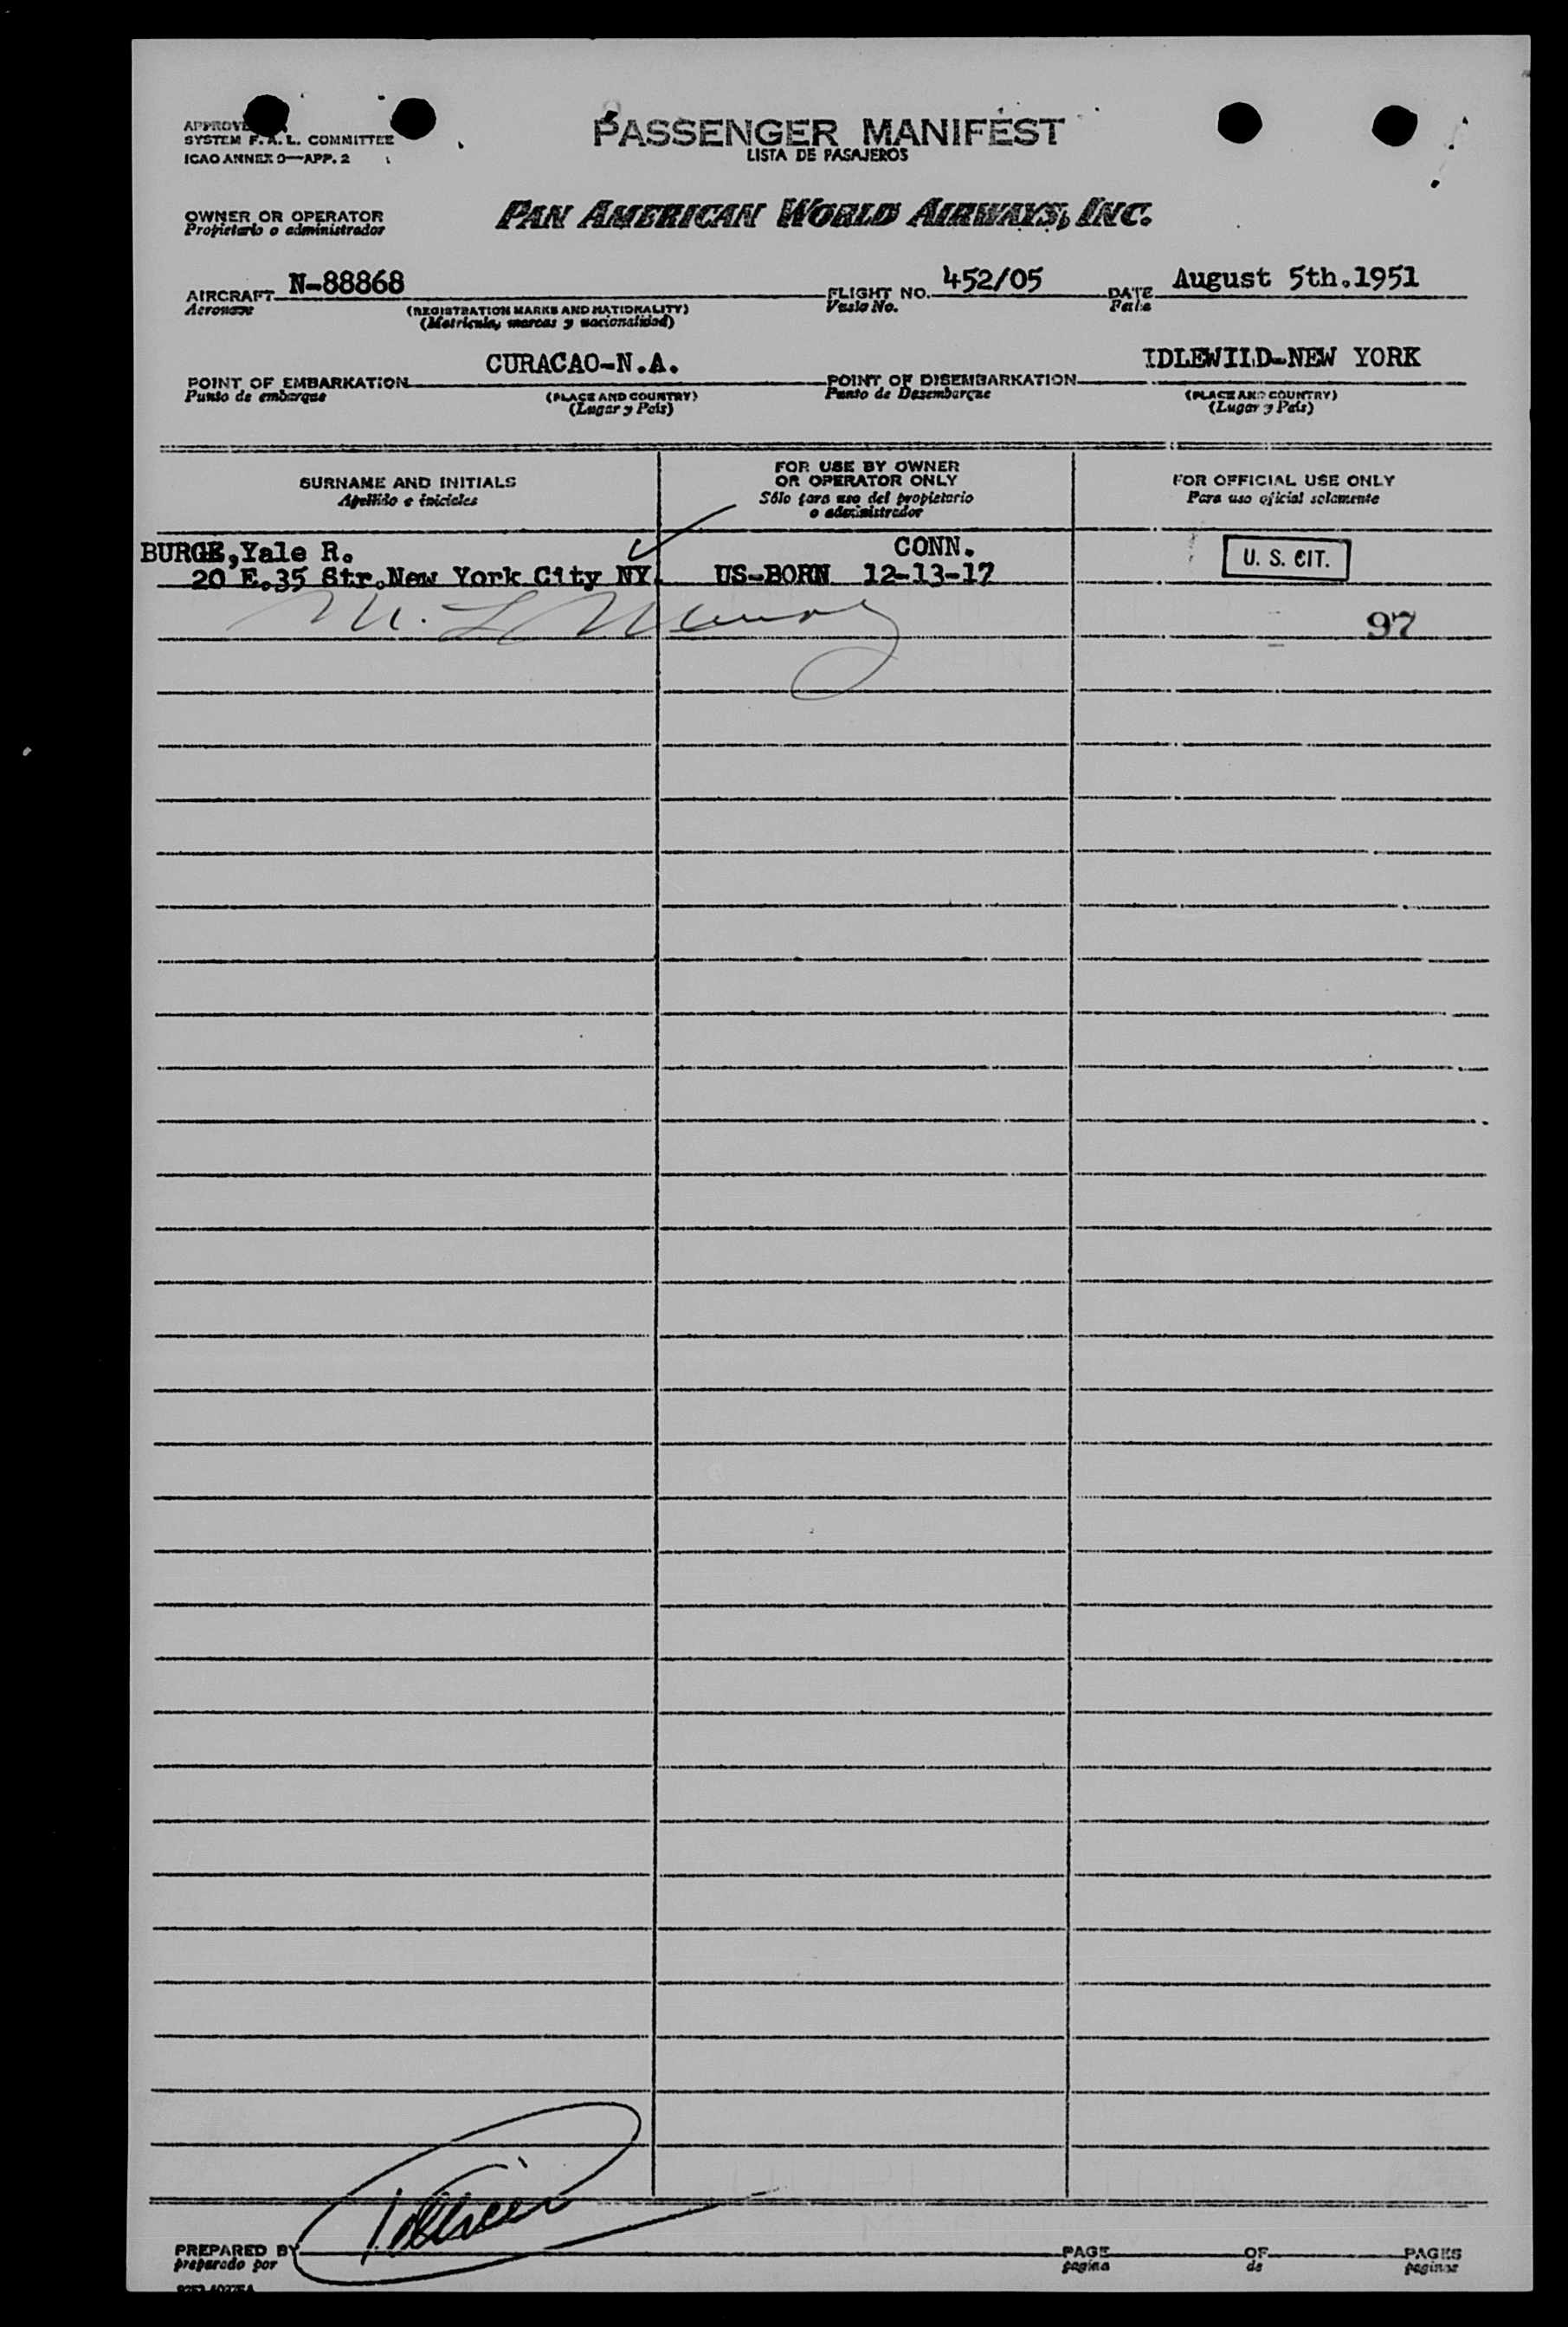 SYSTEM F.A.L. COMMITTEE
ICAO ANNEX 9—APP. 2
PASSENGER MANIFEST
LISTA DE PASAJEROS
OWNER OR OPERATOR
Propietario o administrador
PAN AMERICAN WORLD AIRWAYS, INC.
AIRCRAFT N-88868 FLIGHT NO. 452/05 DATE August 5th.1951
Aeronave (REGISTRATION MARKS AND NATIONALITY) Vuelo No. Fecha
(Matricula, marcas y nacionalidad)
POINT OF EMBARKATION CURACAO-N.A. POINT OF DISEMBARKATION IDLEWILD-NEW YORK
Punto de embarque (PLACE AND COUNTRY) Punto de Desembarque (PLACE AND COUNTRY)
(Lugar y País) (Lugar y País)
SURNAME AND INITIALS FOR USE BY OWNER OR OPERATOR ONLY FOR OFFICIAL USE ONLY
Apellido e iniciales Sólo para uso del propietario o administrador Para uso oficial solamente
BURGE,Yale R. CONN. U. S. CIT.
20 E.35 Str.New York City NY. US-BORN 12-13-17
97
PREPARED BY PAGE OF PAGES
preparado por pagina de paginas